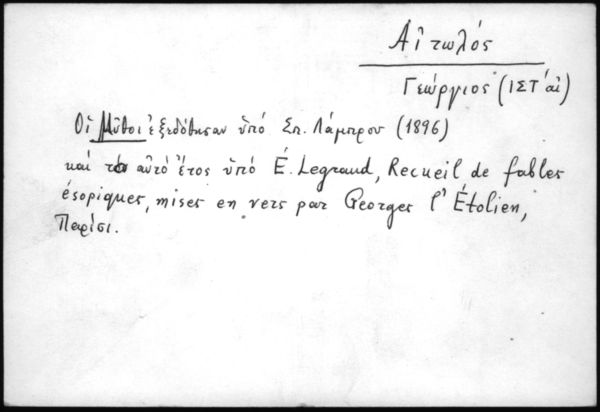 Αἰτωλός
Γεώργιος (ΙΣΤ´ αἰ)
Οἱ Μῦθοι ἐξεδόθησαν ὑπό Σπ. Λάμπρου (1896)
καί τό αὐτό ἔτος ὑπό É. Legrand, Recueil de fables
ésopiques, mises en vers par Georges l'Étolien,
Παρίσι.